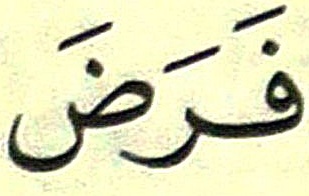 فَرَضَ